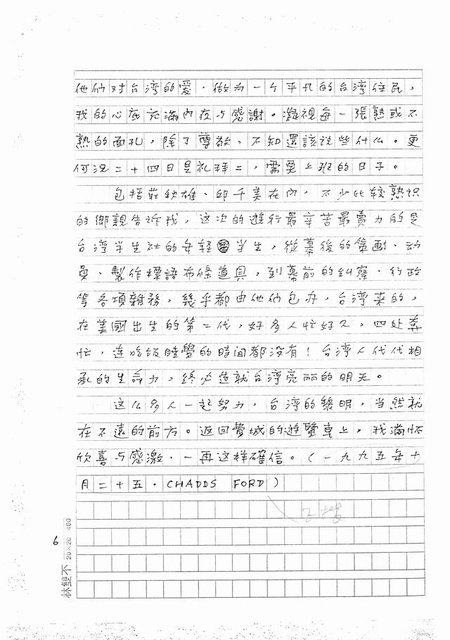 他们对台湾的爱。做为一个平凡的台湾住民，
我的心底充满內在与感謝。凝視每一張熟或不
熟的面孔，除了尊敬，不知還該说些什么。更
何況二十四日是礼拜二，需要上班的日子。
包括莊秋雄、邱千美在內，不少比較熟识
的鄉親告訴我，这次的遊行最辛苦最賣力的是
台湾学生社的年輕学生，從幕後的策劃、动
員、製作標語布條道具，到幕前的糾察、行政
等各項雜務，幾乎都由他们包办，台湾来的，
在美國出生的第二代，好多人忙好久，四处奔
忙，連吃飯睡覺的時间都沒有！台湾人代代相
承的生命力，終必造就台湾亮丽的明天。
这么多人一起努力，台湾的黎明，当然就
在不遠的前方。返回費城的遊覽車上，我滿怀
欣喜与感激，一再这样確信。（一九九五年十
月二十五・CHADDS FORD）
6
林雙不 20×20 400